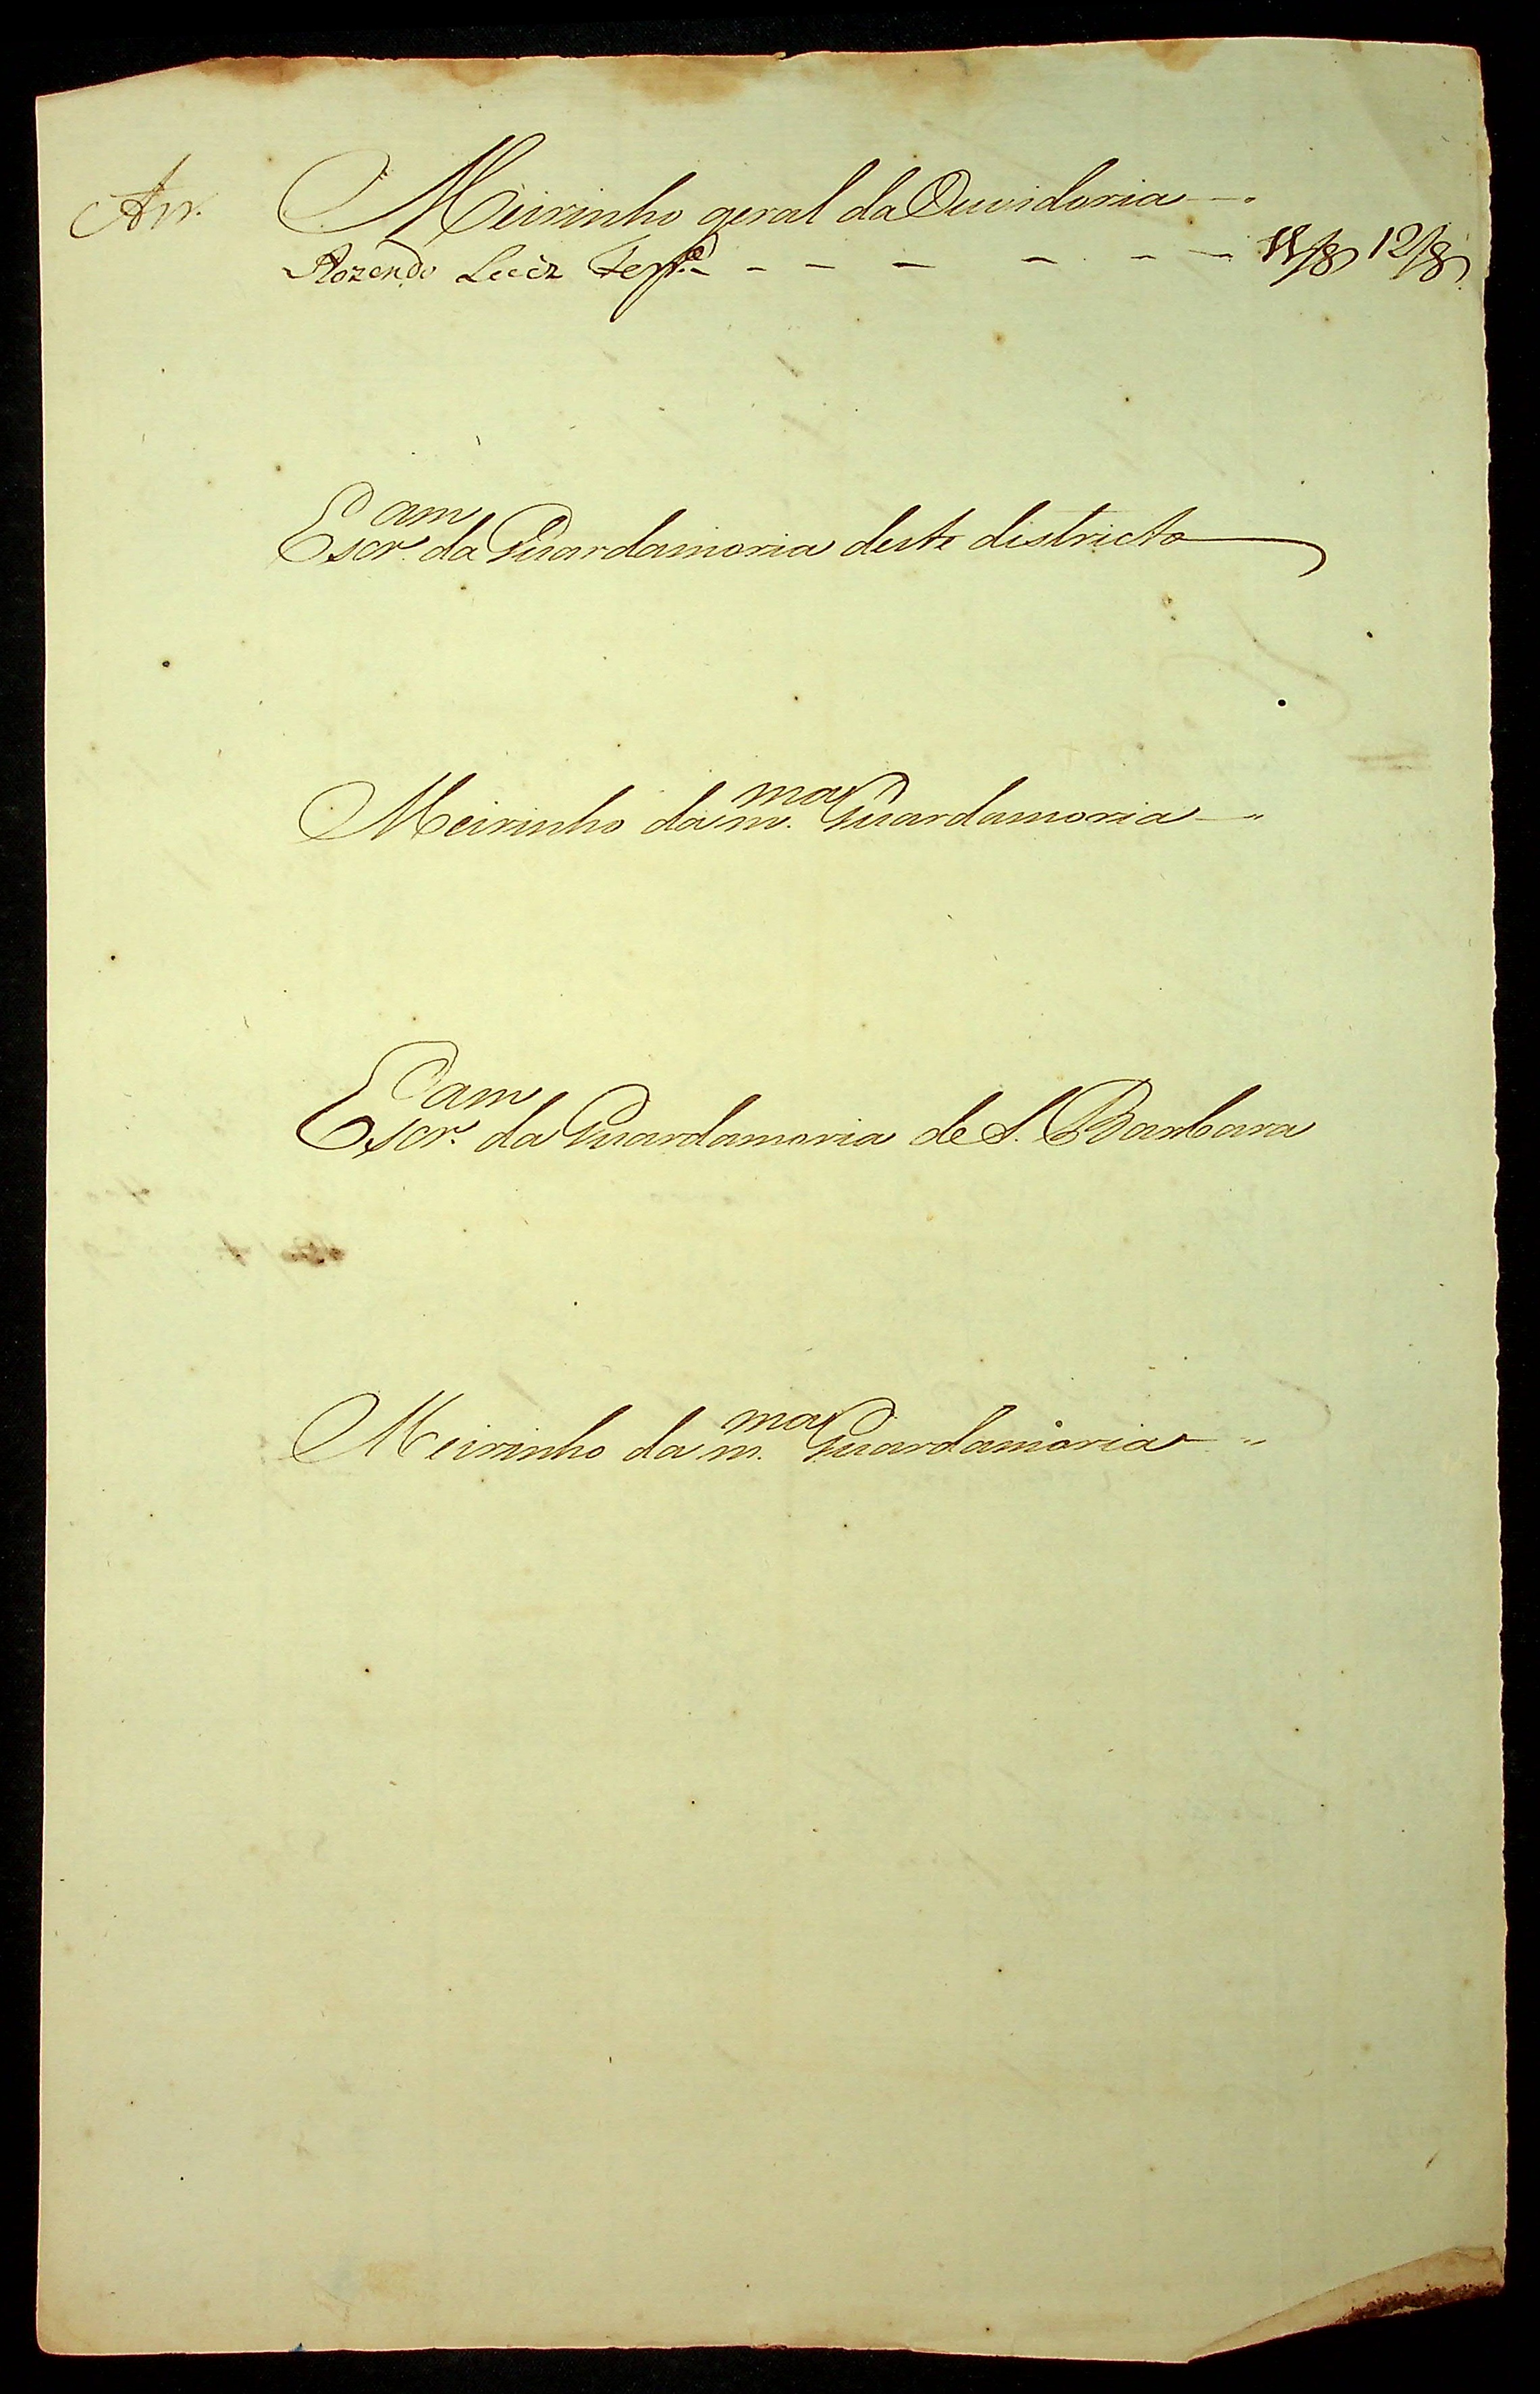 Arr. Meirinho geral da Ouvidoria
Rozendo Luiz - - - - - - - 11/8 12/8
Escr.am da Guardamoria deste districto
Meirinho da m.ma Guardamoria
Escr.am da Guardamoria de S. Barbara
Meirinho da m.ma Guardamoria